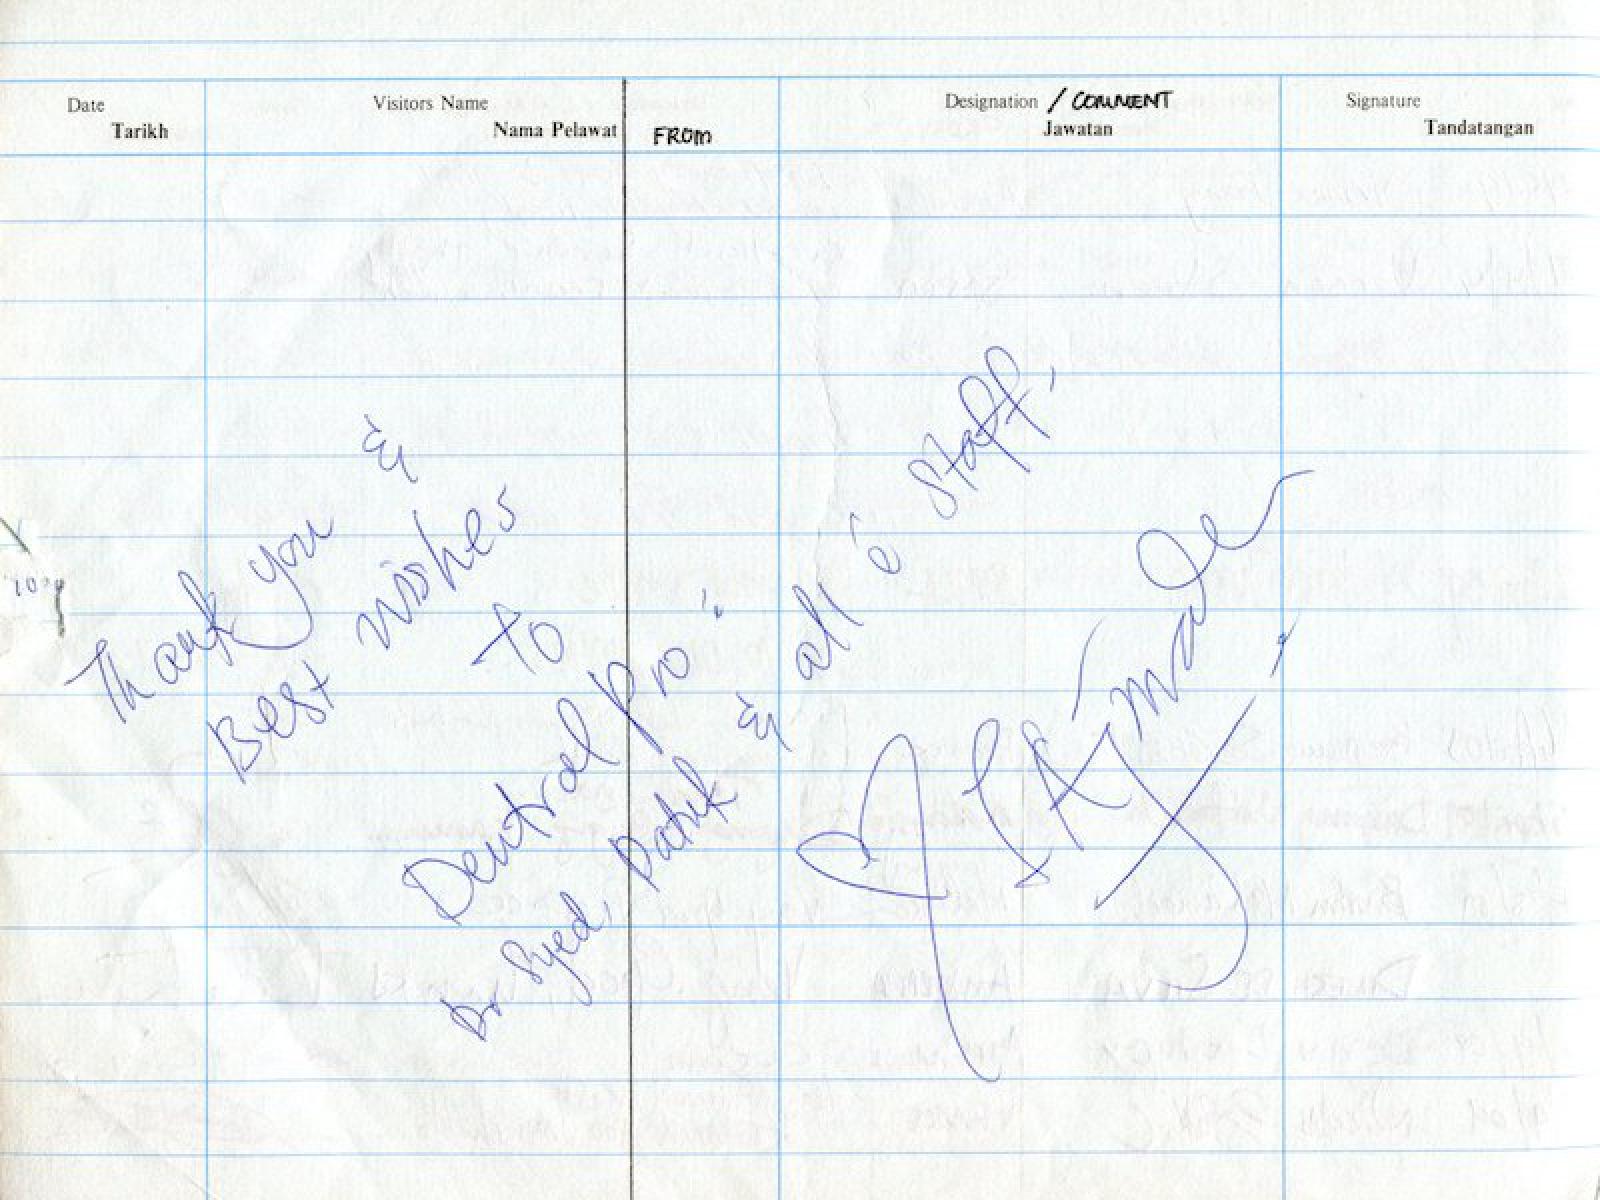 Date Visitors Name Designation / COMMENT Signature
Tarikh Nama Pelawat FROM Jawatan Tandatangan
Thank you &
Best wishes
to
Dentral pro:
Dr Syed, Datuk & all é staff,